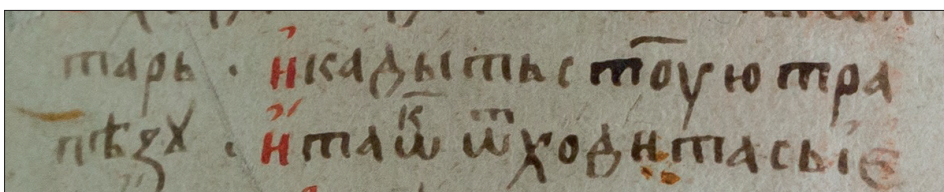 тарь · и҆кадыть ст҃оую тра
пѣзꙋ · и҆таⷦ҇ѡ ѿходитасьіє